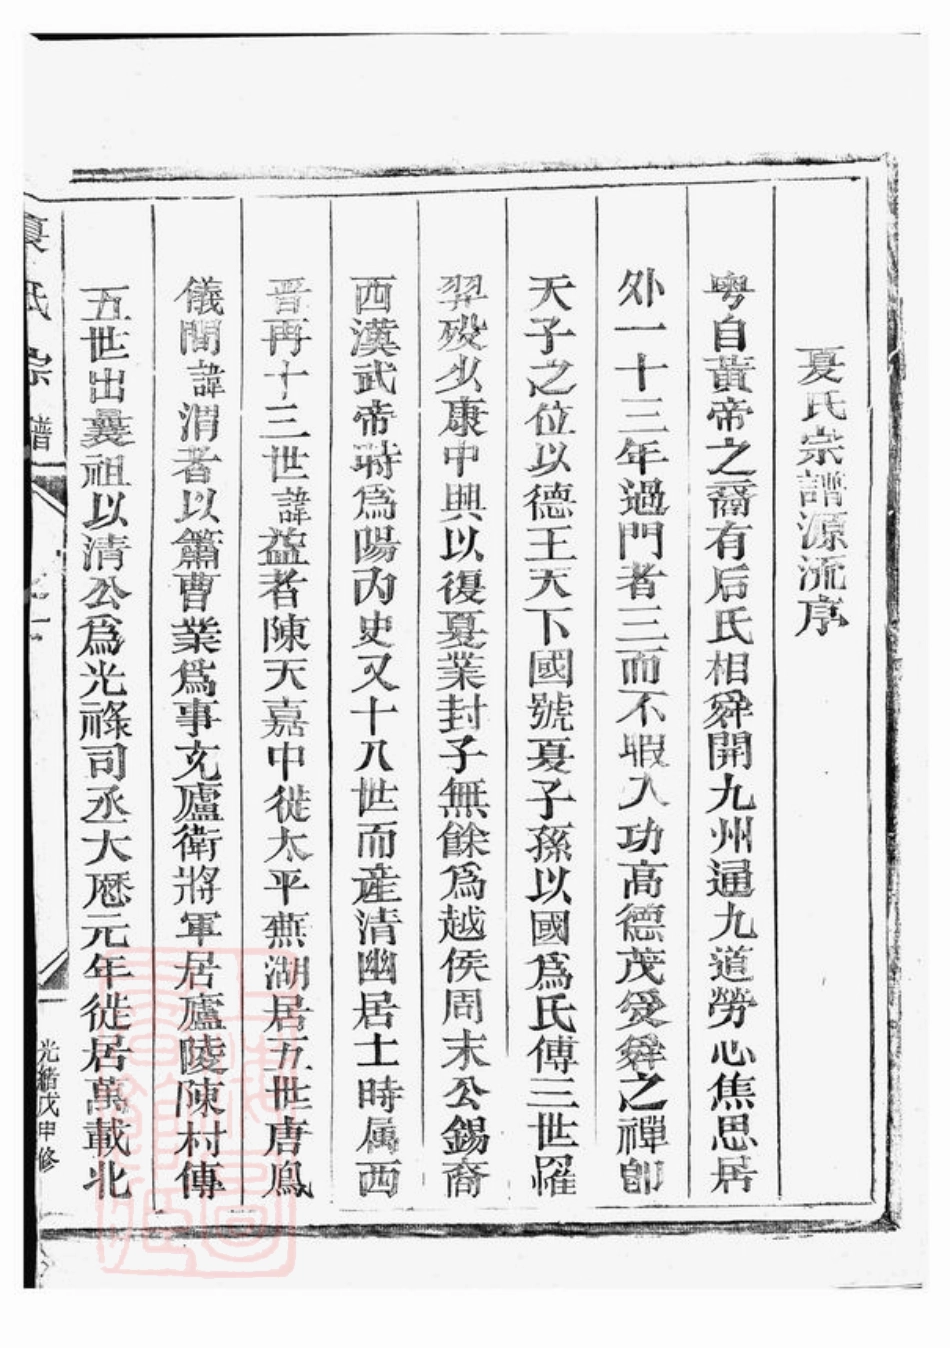 夏氏宗譜源流序
粵自黃帝之裔有后氏相舜開九州通九道勞心焦思居
外一十三年過門者三而不暇入功高德茂受舜之禪卽
天子之位以德王天下國號夏子孫以國為氏傳三世羅
羿殁少康中興以復夏業封子無餘為越侯周末公錫裔
西漢武帝時為陽內史又十八世而產清幽居士時属西
晋再十三世諱益者陳天嘉中徙太平蕪湖居五世唐鳳
儀間諱渭者以簫曹業為事充廬衛將軍居廬陵陳村傳
五世出曩祖以清公為光祿司丞大厯元年徙居萬載北
夏氏宗譜
光緒戊申修